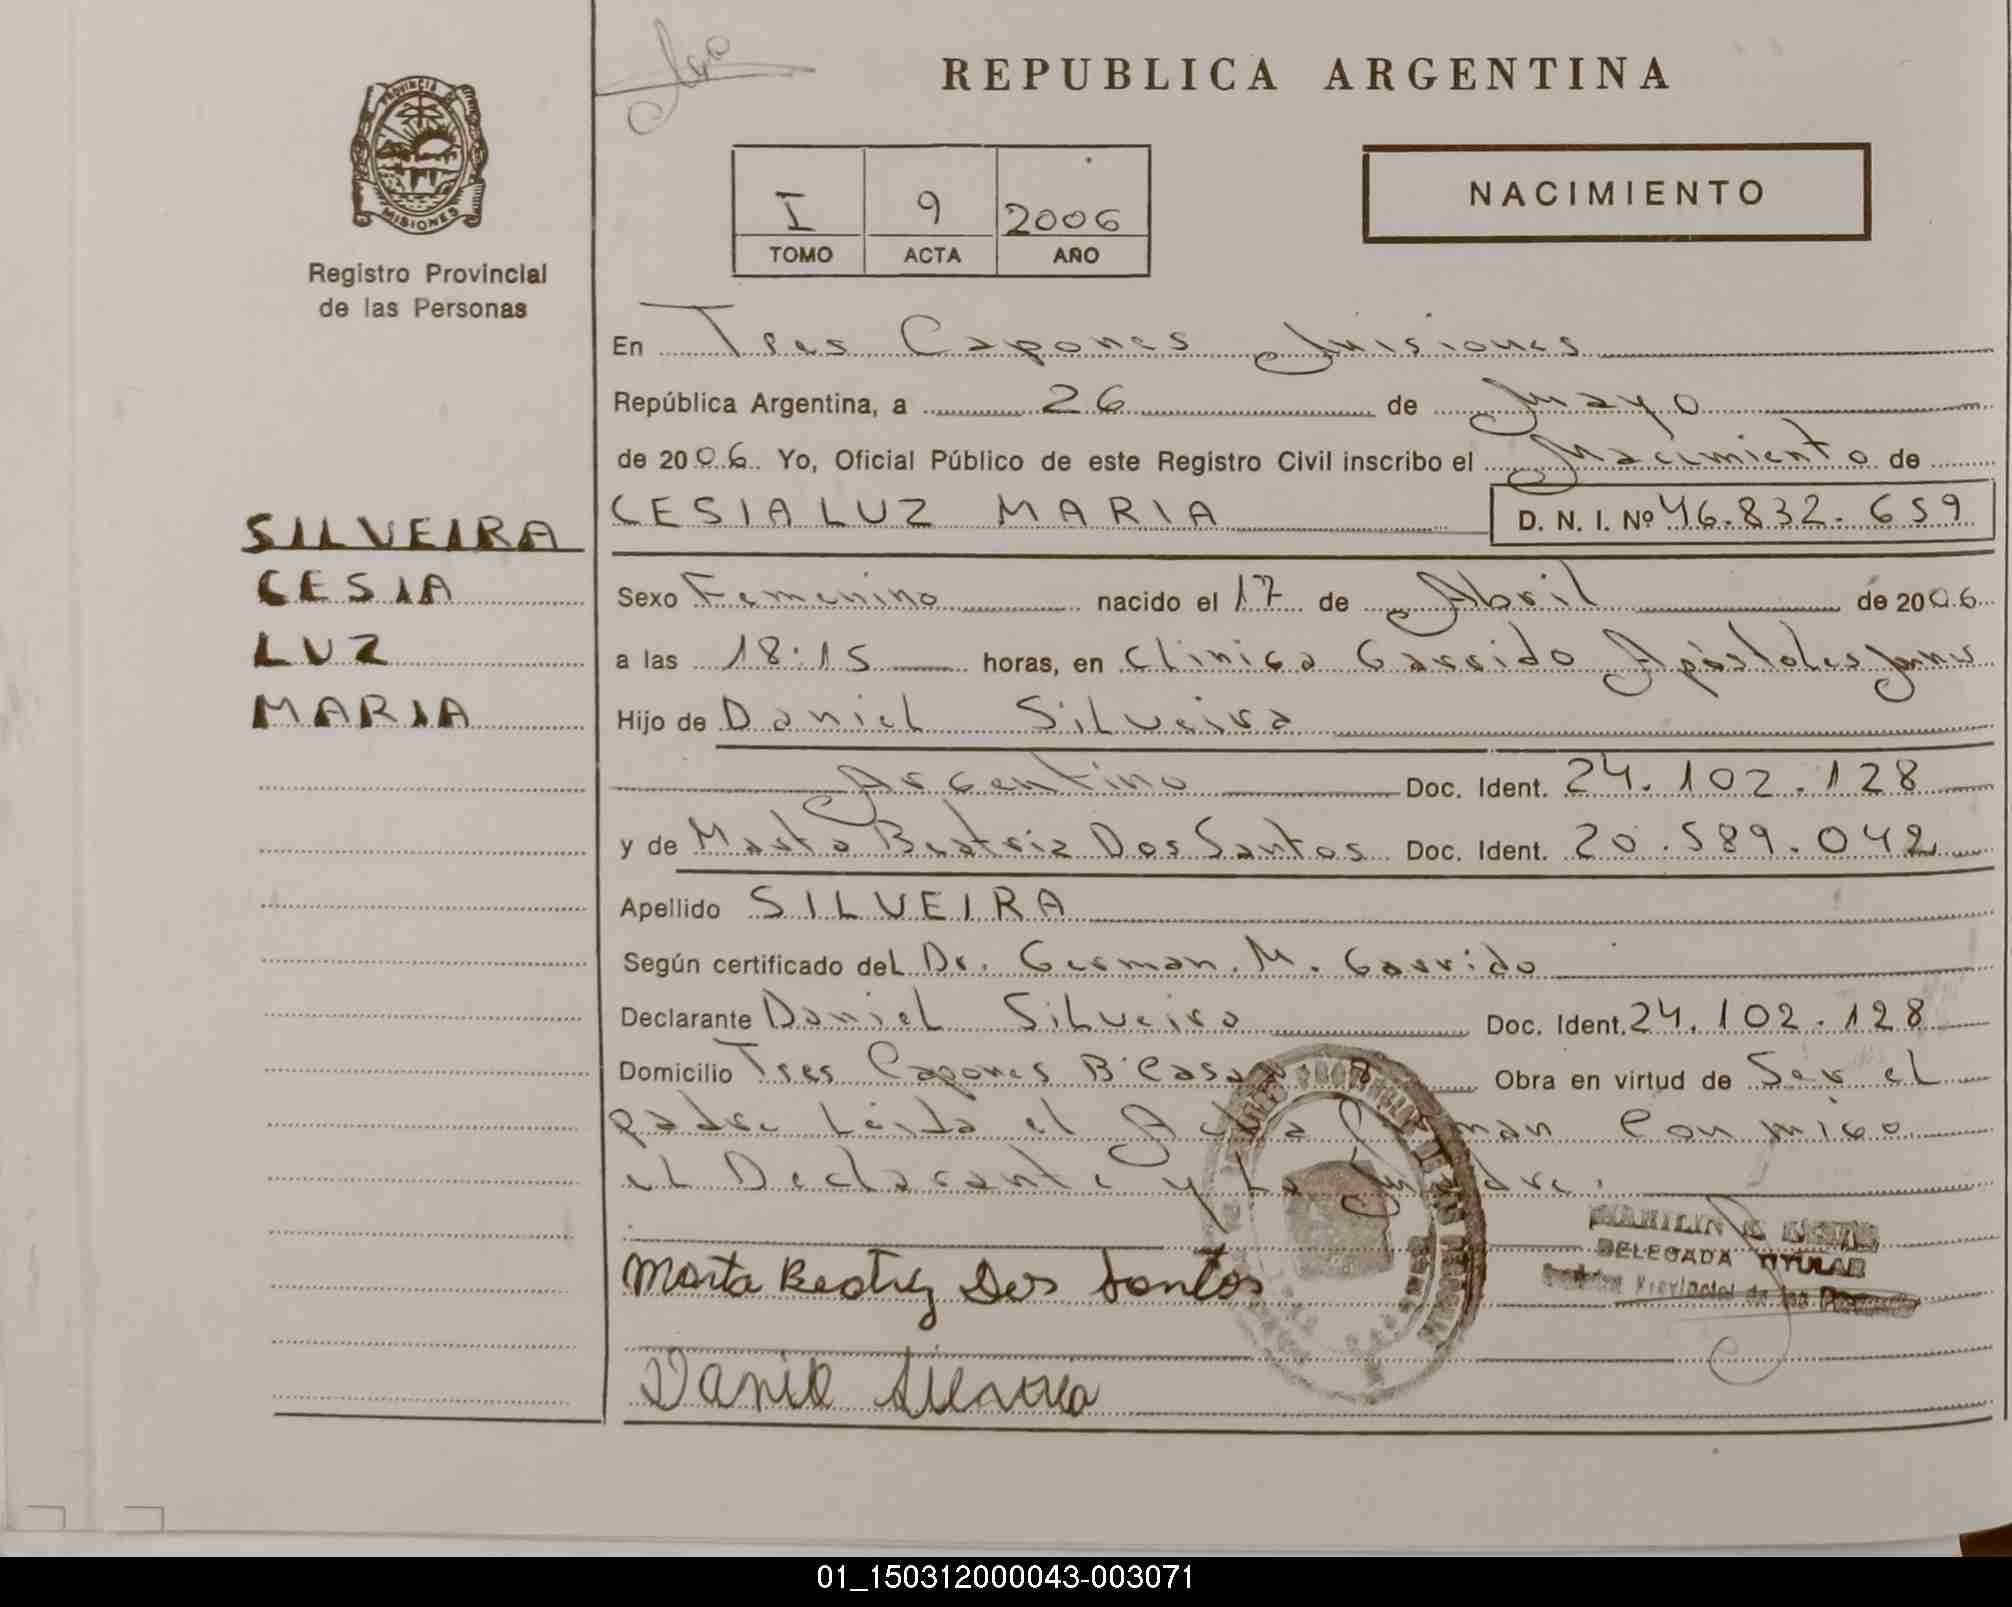 REPUBLICA ARGENTINA
PROVINCIA DE
MISIONES
Registro Provincial
de las Personas
I 9 2006
TOMO ACTA AÑO
NACIMIENTO
En Tres Capones Misiones
República Argentina, a 26 de Mayo
de 2006. Yo, Oficial Público de este Registro Civil inscribo el Nacimiento de
CESIA LUZ MARIA D. N. I. Nº 46.832.659
SILVEIRA
CESIA
LUZ
MARIA
Sexo Femenino nacido el 17 de Abril de 2006
a las 18:15 horas, en Clinica Garrido Apóstoles Mnes
Hijo de Daniel Silveira
Argentino Doc. Ident. 24.102.128
y de Marta Beatriz Dos Santos Doc. Ident. 20.589.042
Apellido SILVEIRA
Según certificado del Dr. German. M. Garrido
Declarante Daniel Silveira Doc. Ident. 24.102.128
Domicilio Tres Capones Bº Casa 8 Obra en virtud de Ser el
padre Leida el Acta Firman Conmigo
el Declarante y La Madre.
MARILIN
DELEGADA TITULAR
Provincial de las Personas
Marta Beatriz Dos Santos
Daniel Silveira
01_150312000043-003071